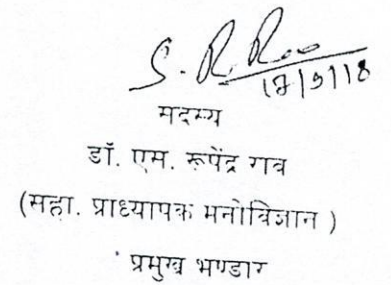 S. R. Rao
17/9/18
सदस्य
डॉ. एम. रूपेंद्र राव
(सहा. प्राध्यापक मनोविज्ञान )
प्रमुख भण्डार